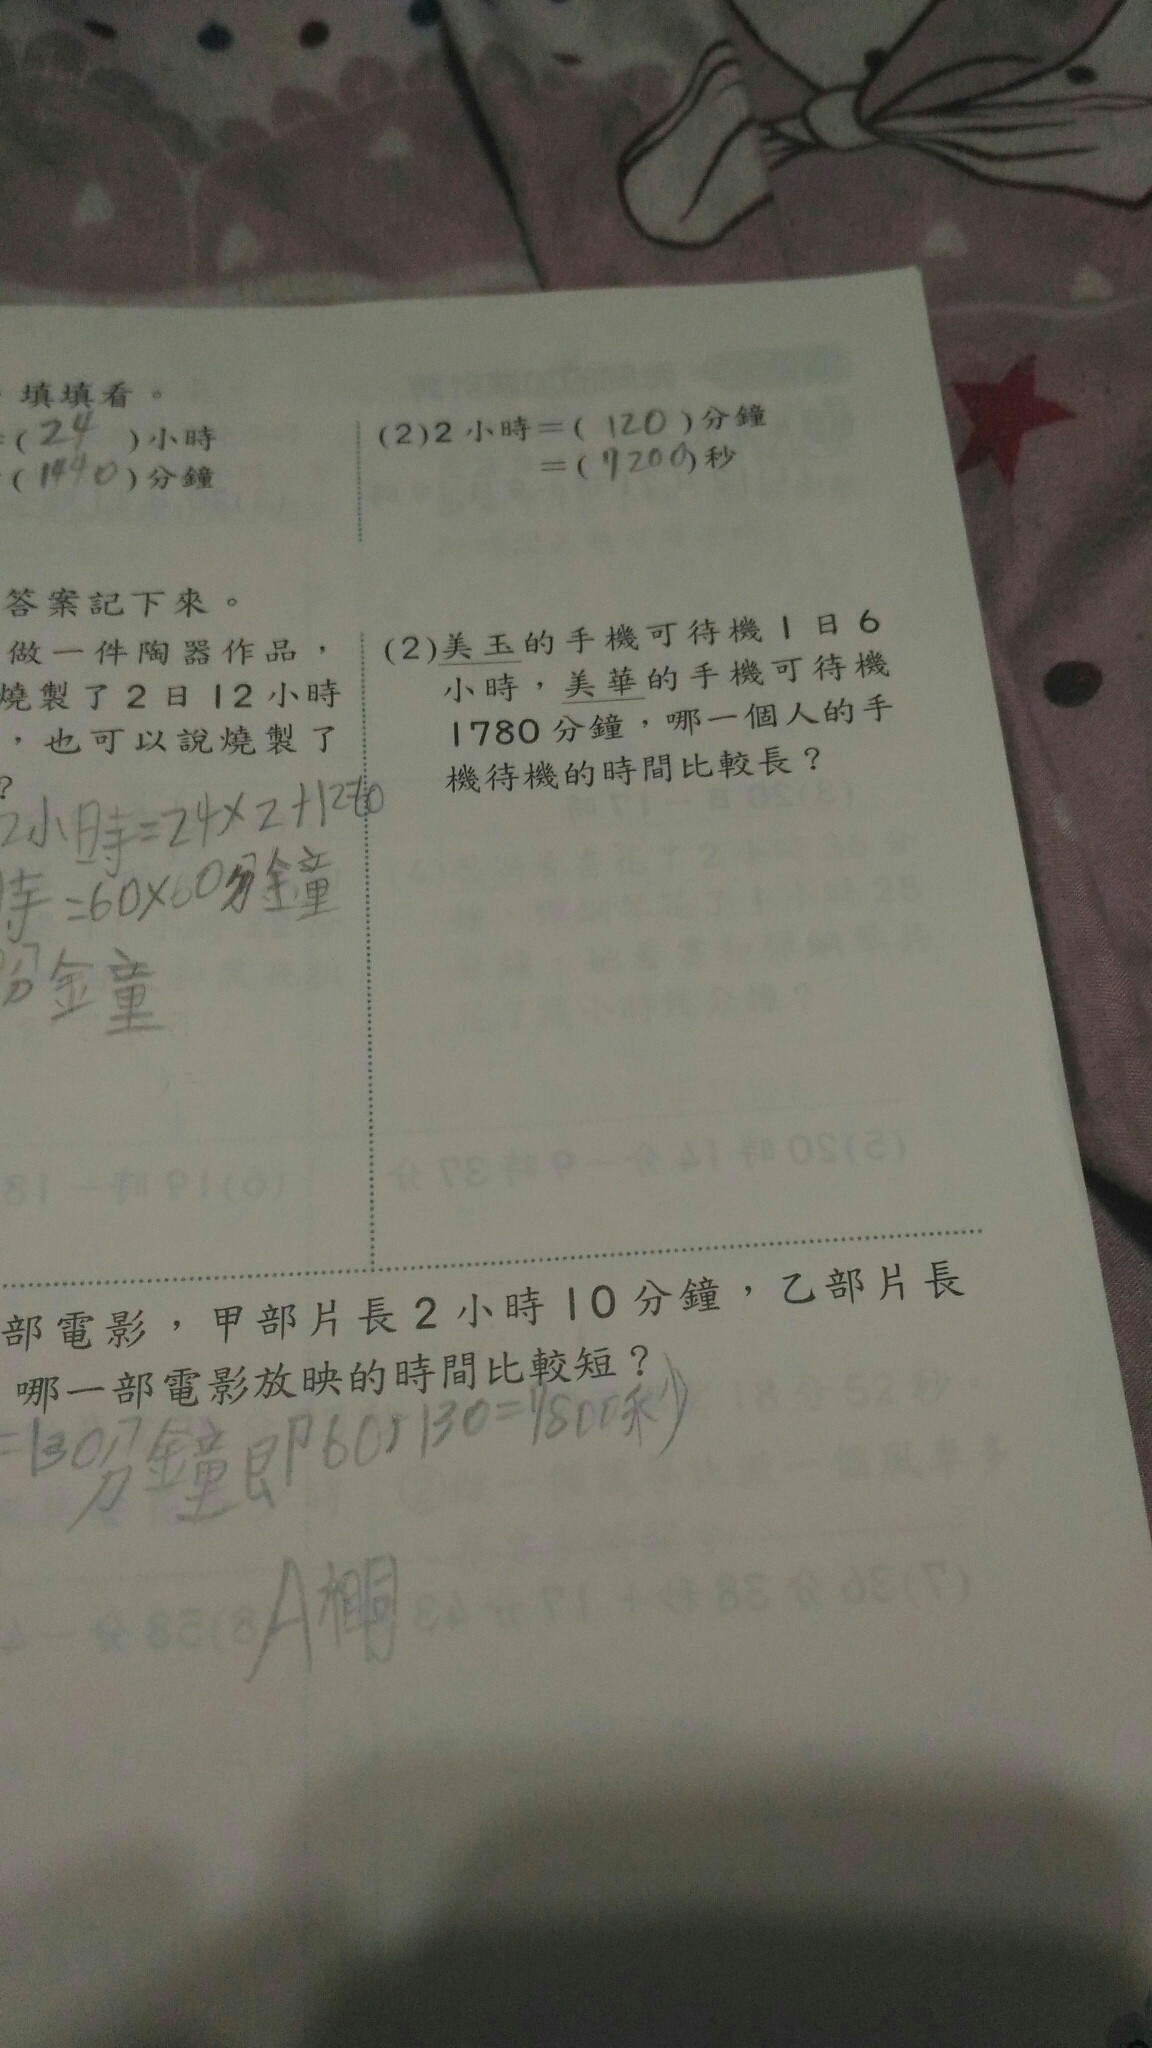 ，填填看。
=( 24 )小時
=( 1440 )分鐘
(2)2小時=( 120 )分鐘
=( 7200 )秒
答案記下來。
做一件陶器作品，
燒製了2日12小時
，也可以說燒製了
？
2小時=24×2+12
時=60×60分鐘
分鐘
(2)美玉的手機可待機1日6
小時，美華的手機可待機
1780分鐘，哪一個人的手
機待機的時間比較長？
部電影，甲部片長2小時10分鐘，乙部片長
哪一部電影放映的時間比較短？
=130分鐘即60×130=7800秒
A相同